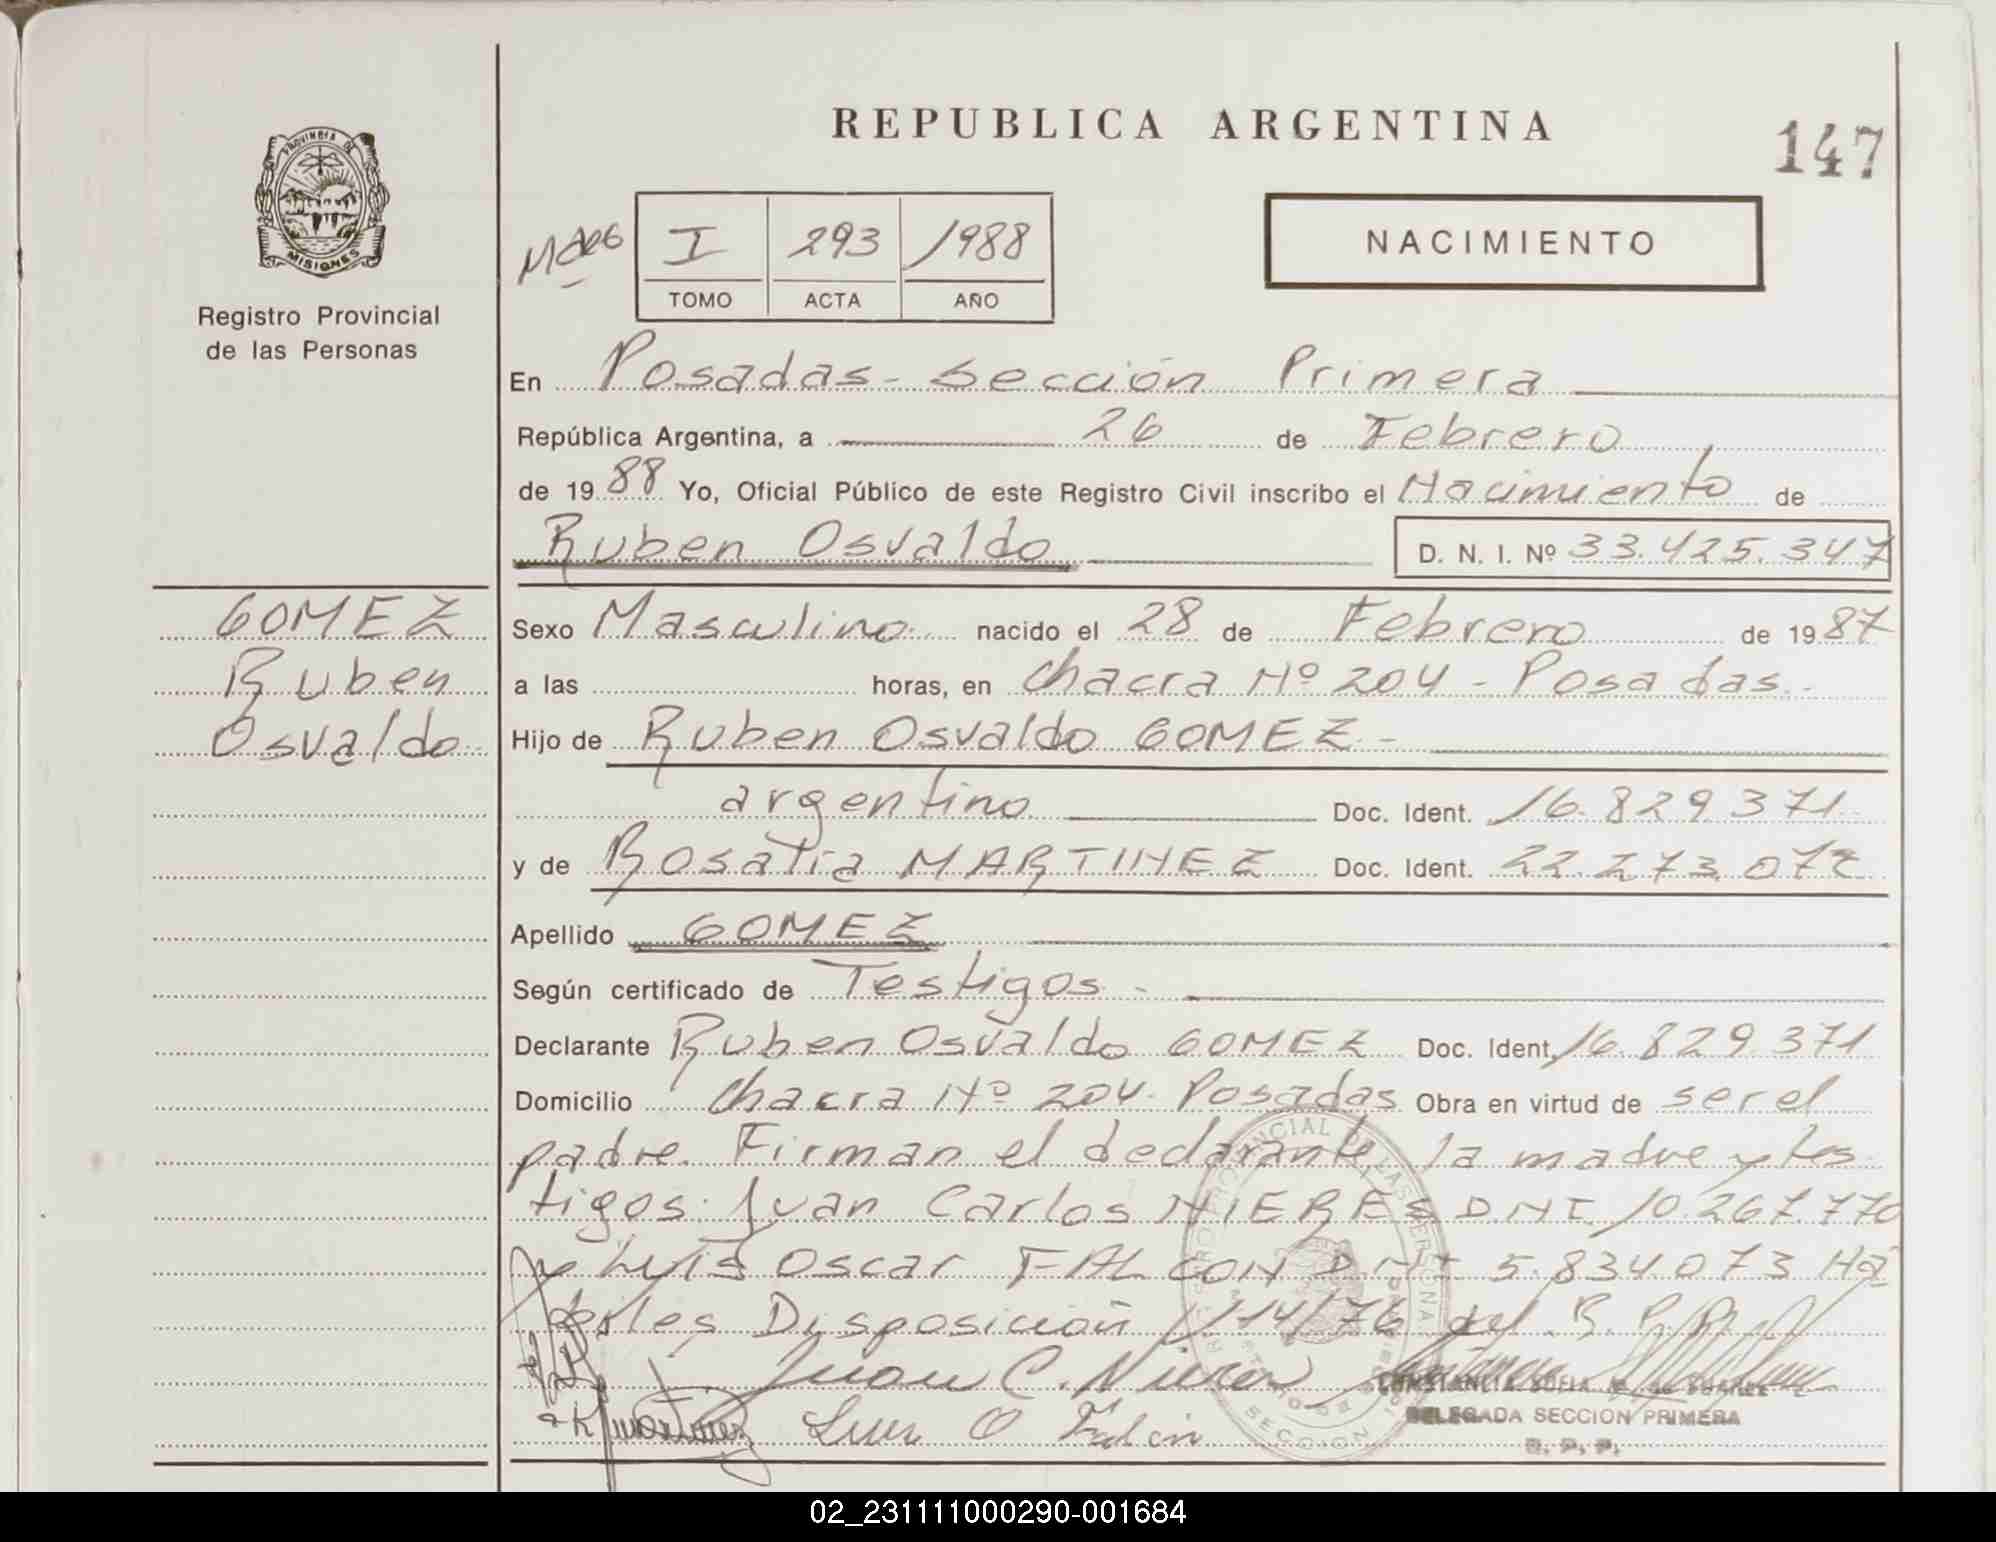 REPUBLICA ARGENTINA
147
PROVINCIA DE
MISIONES
Registro Provincial
de las Personas
I 293 1988
TOMO ACTA AÑO
NACIMIENTO
En Posadas - Sección Primera
República Argentina, a 26 de Febrero
de 1988 Yo, Oficial Público de este Registro Civil inscribo el Nacimiento de
Ruben Osvaldo D. N. I. Nº 33.425.347
GOMEZ
Ruben
Osvaldo
Sexo Masculino nacido el 28 de Febrero de 1987
a las horas, en Chacra Nº 204 - Posadas.
Hijo de Ruben Osvaldo GOMEZ -
argentino Doc. Ident. 16.829.371
y de Rosalia MARTINEZ Doc. Ident. 22.273.072
Apellido GOMEZ
Según certificado de Testigos -
Declarante Ruben Osvaldo GOMEZ Doc. Ident. 16.829.371
Domicilio Chacra Nº 204. Posadas Obra en virtud de ser el
padre. Firman el declarante, la madre y tes
tigos: Juan Carlos NIERES D.N.I. 10.267.770
y Luis Oscar FALCON D.N.I. 5.834.073 Há
biles Disposición 114/76 del R.P.P.
Juan C. Nieres
Luis O Falcon
CONSTANCIA SOFIA DE SUAREZ
DELEGADA SECCION PRIMERA
R. P. P.
02_231111000290-001684